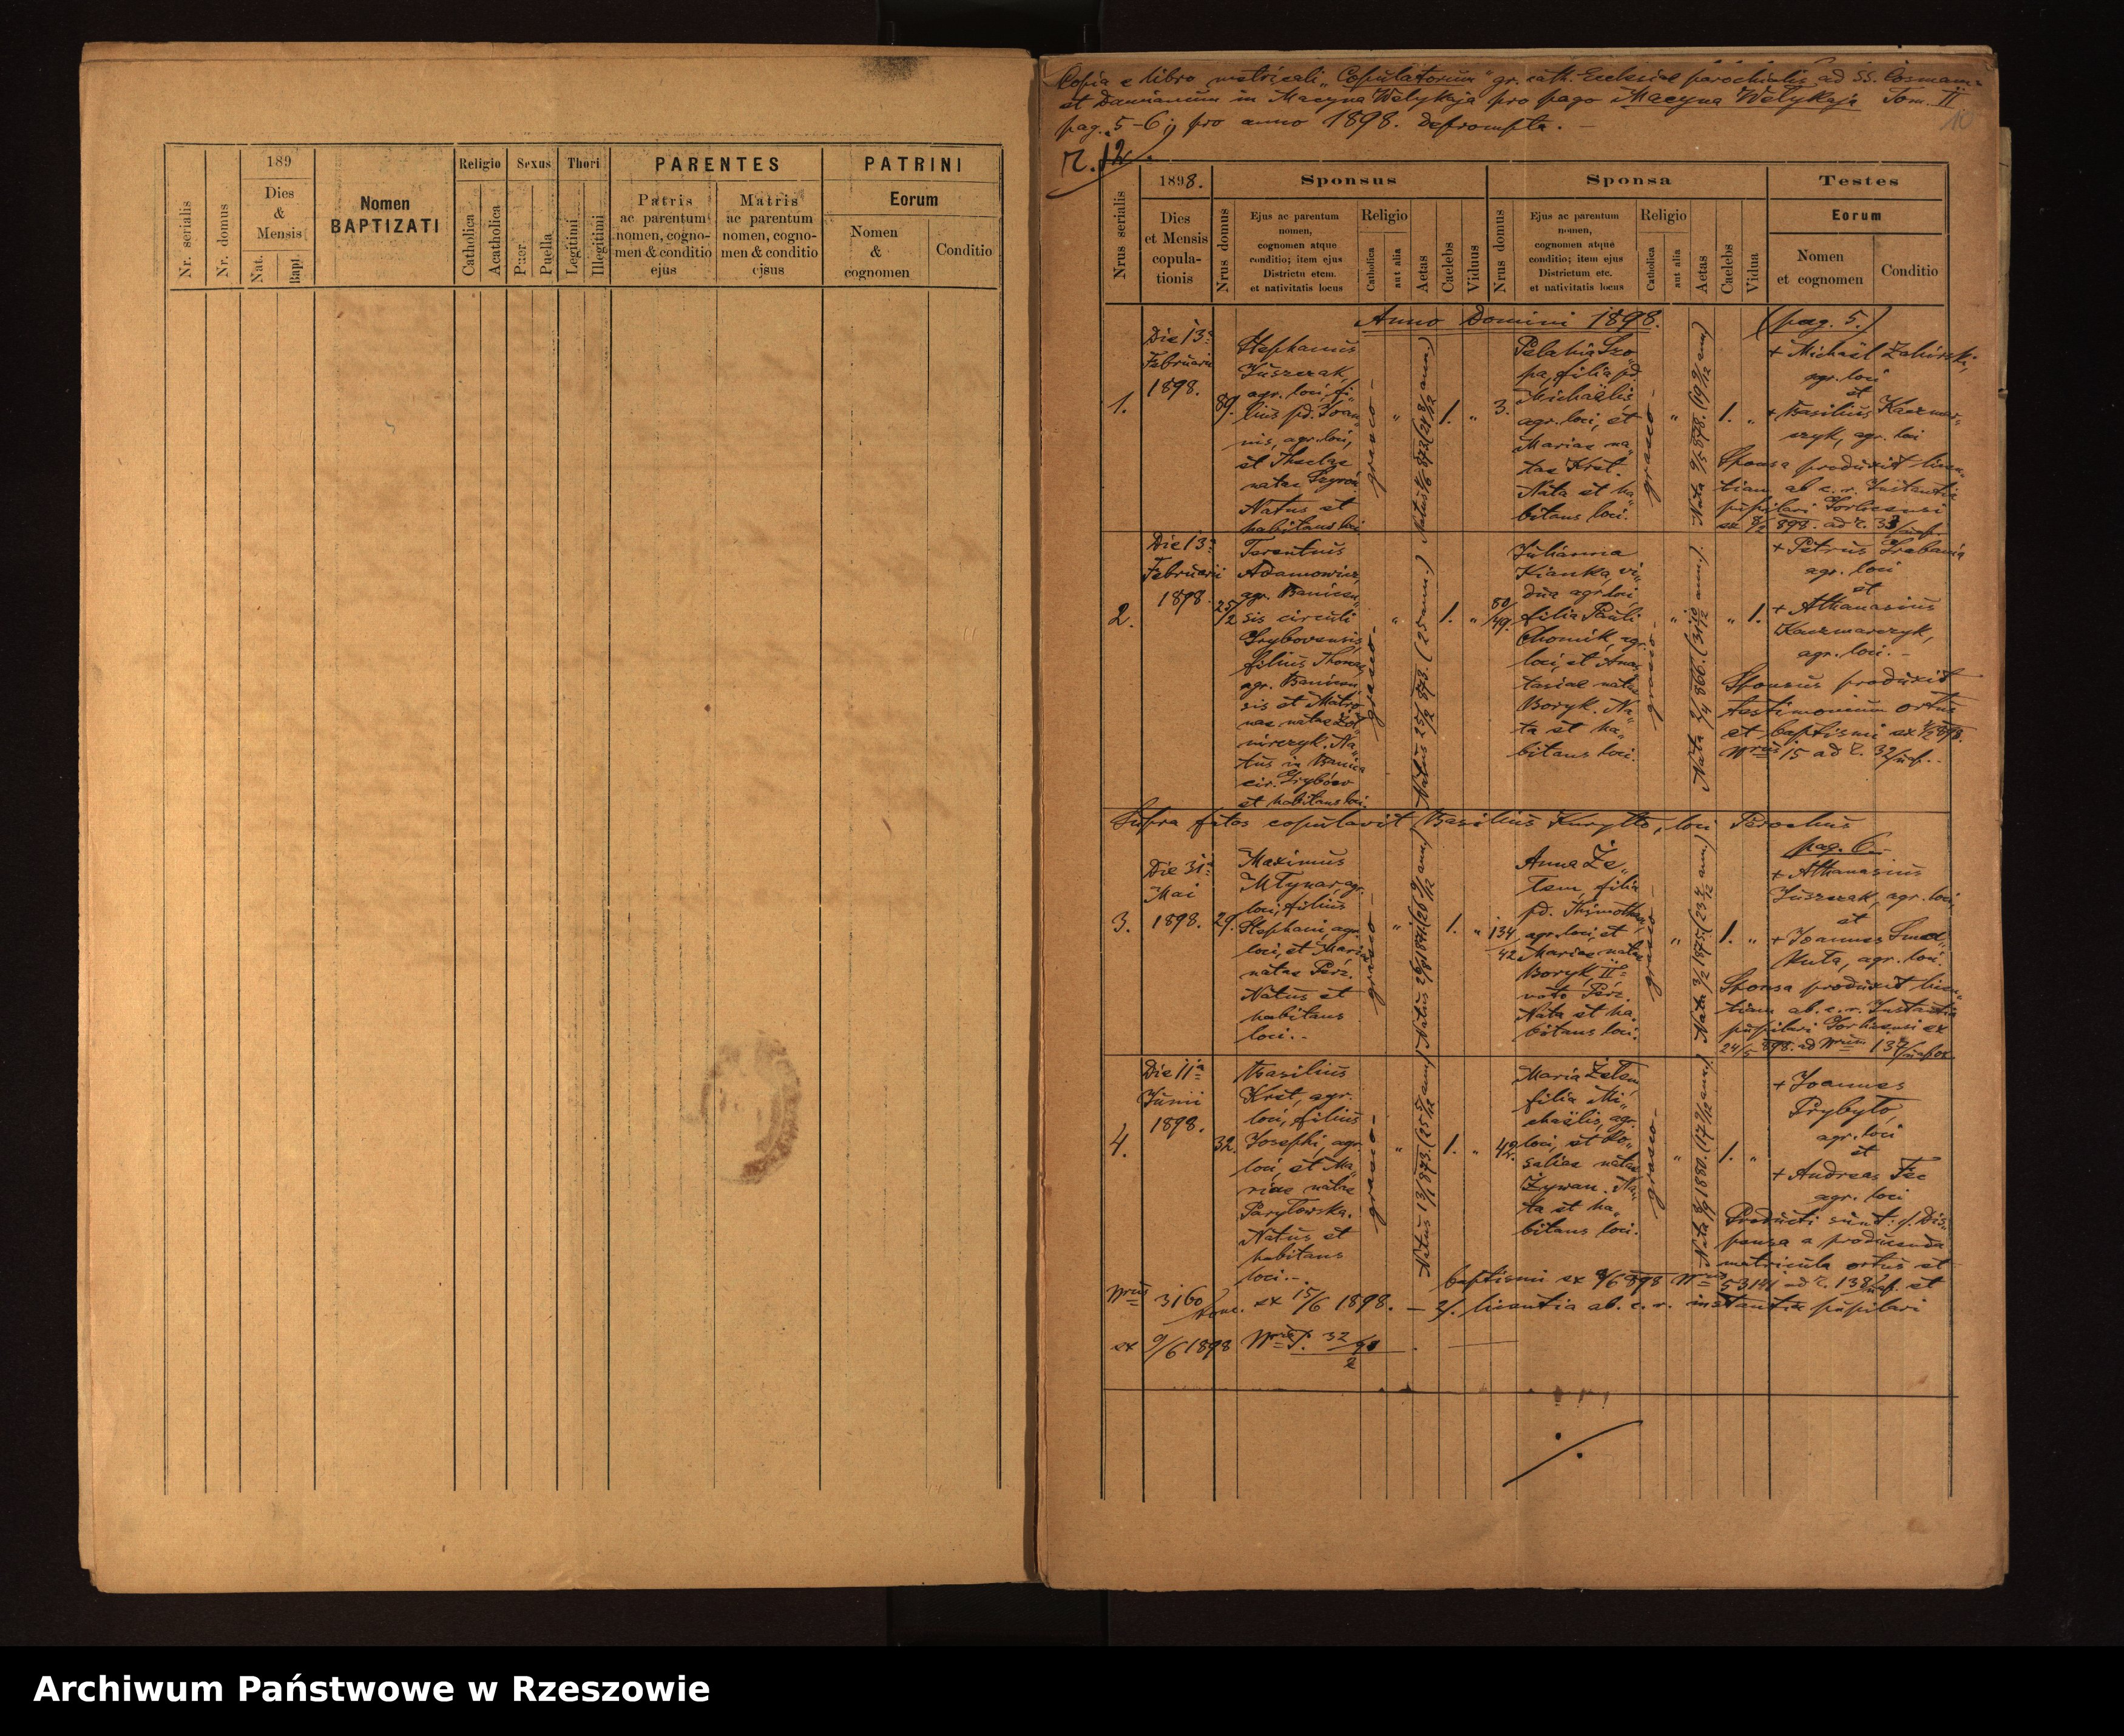 189
Nr. serialis
Nr. domus
Dies
&
Mensis
Nat.
Bapt.
Nomen
BAPTIZATI
Religio
Catholica
Acatholica
Sexus
Puer.
Puella
Thori
Legitimi
Illegitimi
PARENTES
Patris
ac parentum
nomen, cogno-
men & conditio
ejus
Matris
ac parentum
nomen, cogno-
men & conditio
ejsus
PATRINI
Eorum
Nomen
&
cognomen
Conditio
Copia e libro metricali „Copulatorum" gr. cath. Ecclesiae parochialis ad SS. Cosmam
et Damianum in Macyna Welykaja pro pago Macyna Welykaja Tom. II
pag. 5-6 pro anno 1898. deprompta. –
10
Nrus serialis
1898.
Dies
et Mensis
copula-
tionis
Sponsus
Nrus domus
Ejus ac parentum
nomen,
cognomen atque
conditio; item ejus
Districtu etcm.
et nativitatis locus
Religio
Catholica
aut alia
Aetas
Caelebs
Viduus
Sponsa
Nrus domus
Ejus ac parentum
nomen,
cognomen atque
conditio; item ejus
Districtum etc.
et nativitatis locus
Religio
Catholica
aut alia
Aetas
Caelebs
Vidua
Testes
Eorum
Nomen
et cognomen
Conditio
Anno Domini 1898.
(pag. 5.)
1.
Die 13ª
Februarii
1898.
89.
Stephanus
Juszczak,
agr. loci, fi„
lius pd. Joan„
nis, agr. loci,
et Theclae
natae
Natus et
habitans loci
graeco –
„
1.
„
3.
Pelahia Szo„
pa, filia pd.
Michaëlis
agr. loci, et
Mariae na„
tae Kret.
Nata et ha„
bitans loci.
graeco –
„
1.
„
+ Michaël Zahirski,
agr. loci
et
+ Basilius Kaczmar„
czyk, agr. loci
Sponsa produxit licen„
tiam ab c. r. Instantia
pupilari Gorlicensi
2.
Die 13ª
Februarii
1898.
25/2
Terentius
Adamowicz,
agr. Banicen„
sis circuli
Grybovensis,
filius Thomae,
agr. Banicen„
sis et Matro„
nae natae
Na„
tus in Banica
cir. Grybów
et habitans loci.
graeco –
Natus 25/2 873. (25 ann.)
„
1.
„
80/49.
Julianna
Kianka, vi„
dua agr. loci,
filia Pauli
Chomik, agr.
loci, et Anas„
tasiae natae
Boryk. Na„
ta et ha„
bitans loci.
graeco –
„
„
1.
+ Petrus Hrabania
agr. loci
et
+ Athanasius
Kaczmarczyk,
agr. loci. –
Sponsus produxit
testimonium ortus
et baptismi
Supra fatos copulavit Basilius Kuryłło, loci Parochus
pag. 6. –
3.
Die 31ª
Mai
1898.
29.
Maximus
Młynar, agr.
loci, filius
Stephani, agr.
loci, et Mariae
natae Perż.
Natus et
habitans
loci. –
graeco –
„
1.
„
134/42
Anna Że„
łem, filia
pd. Thimothei,
agr. loci, et
Mariae natae
Boryk, II°
voto Perż.
Nata et ha„
bitans loci.
graeco –
„
1.
„
+ Athanasius
Juszczak, agr. loci,
et
+ Joannes Smere„
kuta, agr. loci.
Sponsa produxit licen„
tiam ab c. r. Instantia
pupilari Gorlicensi ex
4.
Die 11ª
Junii
1898.
32.
Basilius
Kret, agr.
loci, filius
Josephi, agr.
loci, et Ma„
riae natae
Paryłowska.
Natus et
habitans
loci. –
graeco –
„
1.
„
42.
Maria Żełem,
filia Mi„
chaëlis, agr.
loci, et Ro„
saliae natae
Żywan. Na„
ta et ha„
bitans loci.
graeco –
„
1.
„
+ Joannes
Prybyło,
agr. loci
et
+ Andreas Fec
agr. loci
Producti sunt: 1. Dis„
pensa a producenda
matricula ortus et
baptismi ex
et
Nrus 3160 ex 15/6 1898. – 2/. licentia ab c. r. instantia pupilari
ex 9/6 1898
Archiwum Państwowe w Rzeszowie